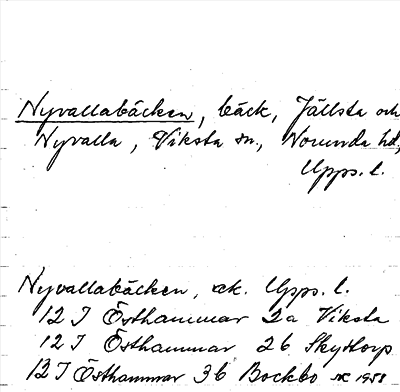 Nyvallabäcken, bäck, Jällsta och
Nyvalla, Viksta sn., Norunda hd,
Upps. l.
Nyvallabäcken, ek. Upps. l.
12 I Östhammar 2a Viksta
12 I Östhammar 2b Skyttorp
12 I Östhammar 3b Bockbo 1958